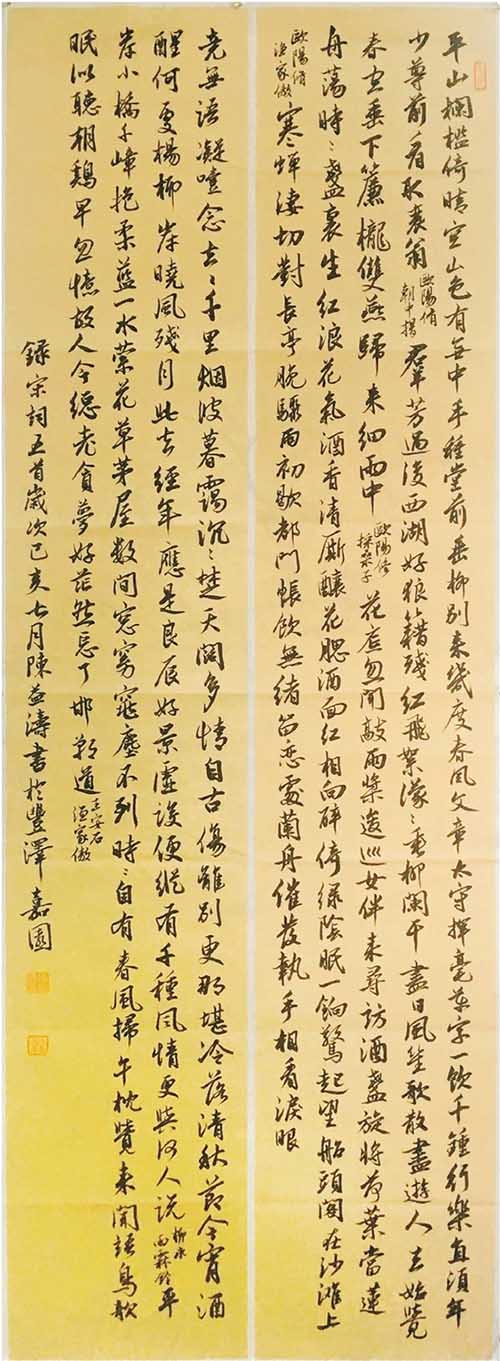 平山欄檻倚晴空山色有無中手種堂前垂柳別來幾度春風文章太守揮毫萬字一飲千鍾行樂直須年
少尊前看取衰翁歐陽修朝中措羣芳過後西湖好狼籍殘紅飛絮濛〻垂柳闌干盡日風笙歌散盡遊人去始覺
春空垂下簾櫳雙燕歸來細雨中歐陽修採桑子花底忽聞敲兩槳逡巡女伴來尋訪酒盞旋將荷葉當蓮
舟蕩時〻盞裏生紅浪花氣酒香清廝釀花腮酒面紅相向醉倚綠陰眠一餉驚起望船頭閣在沙灘上
歐陽修漁家傲寒蟬淒切對長亭晚驟雨初歇都門帳飲無緒留戀處蘭舟催發執手相看淚眼
竟無語凝噎念去〻千里烟波暮靄沉〻楚天闊多情自古傷離別更那堪冷落清秋節今宵酒
醒何處楊柳岸曉風殘月此去經年應是良辰好景虛設便縱有千種風情更與何人說柳永雨霖鈴平
岸小橋千嶂抱柔藍一水縈花草茅屋數間窗窈窕塵不到時〻自有春風掃午枕覺來聞語鳥欹
眠似聽朝鷄早忽憶故人今總老貪夢好茫然忘了邯鄲道王安石漁家傲
錄宋詞五首歲次己亥七月陳益濤書於豐澤嘉園